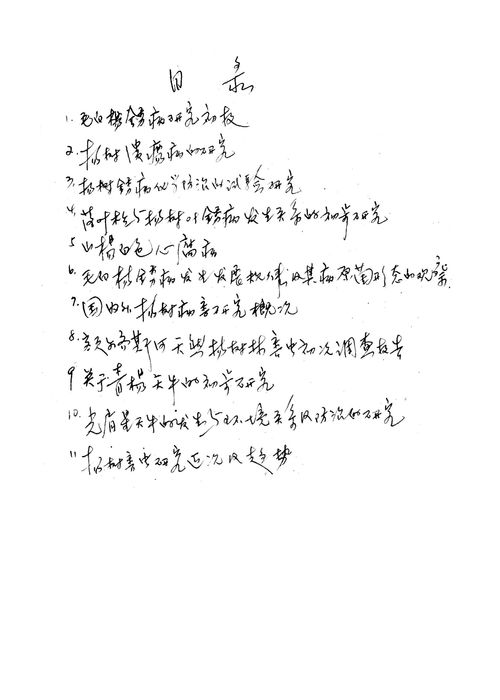 目 录
1. 毛白杨锈病研究初报
2. 杨树溃疡病的研究
3. 杨树锈病化学防治的试验研究
4. 落叶松与杨树叶锈病发生关系的初步研究
5 山杨白色心腐病
6. 毛白杨锈病发生发展规律及其病原菌形态的观察
7. 国内外杨树病害研究概况
8. 额尔齐斯河天然杨树林害虫初次调查报告
9 关于青杨天牛的初步研究
10. 光肩星天牛的发生与环境关系及防治的研究
11 杨树害虫研究近况及趋势